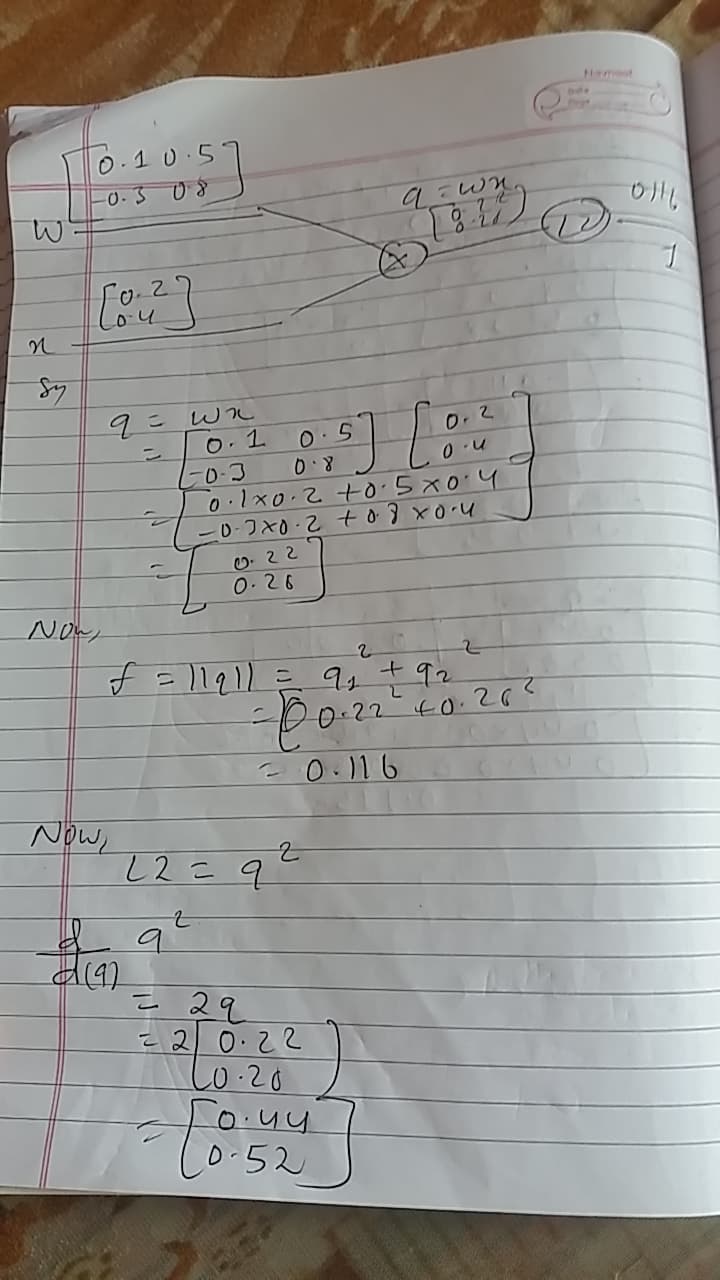 [0.1 0.5
-0.3 0.8]
W
q = wx
[0.22
0.26]
0.116
*
L2
1
[0.2
0.4]
x
q = wx
= [0.1 0.5
-0.3 0.8] [0.2
0.4]
= [0.1×0.2 + 0.5×0.4
-0.3×0.2 + 0.8×0.4]
= [0.22
0.26]
Now,
f = ||q|| = q₁² + q₂²
= 0.22² + 0.26²
= 0.116
Now,
L2 = q²
d/d(q) q²
= 2q
= 2[0.22
0.26]
= [0.44
0.52]